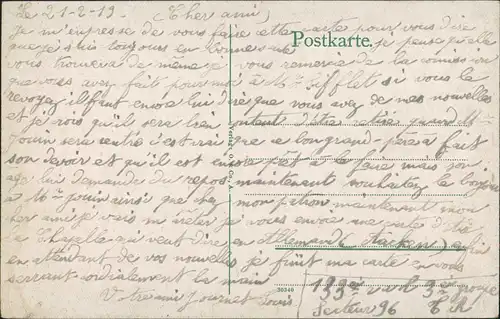 Le 21-2-19. (Cher ami)
Je m'empresse de vous faire cette carte pour vous dire
que je suis toujours en bonne santé je pense qu'elle
vous trouvera de même je vous remercie de la comission
que vous avez fait pour moi à Mr Gifflet si vous le
revoyez il faut envoi lui dire que vous avez de mes nouvelles
et je crois qu'il sera bien content d'être quand Mr
Jouin sera rentré c'est vrai que ce bon grand père a fait
son devoir et qu'il est encore prêt à le faire mais son
age lui demande du repos maintenant souhaitez le bonjour
à Mr Jouin ainsi que chez mon maintenant mon
cher ami je vais m'arrêter je vous envoie une carte d'Aix
la Chapelle qui veut dire en Allemand (Aachen) enfin
en attendant de vos nouvelles je finit ma carte en vous
serrant cordialement la main
Votre ami Journet Louis
Postkarte.
30340
133e 3e groupe
Secteur 96